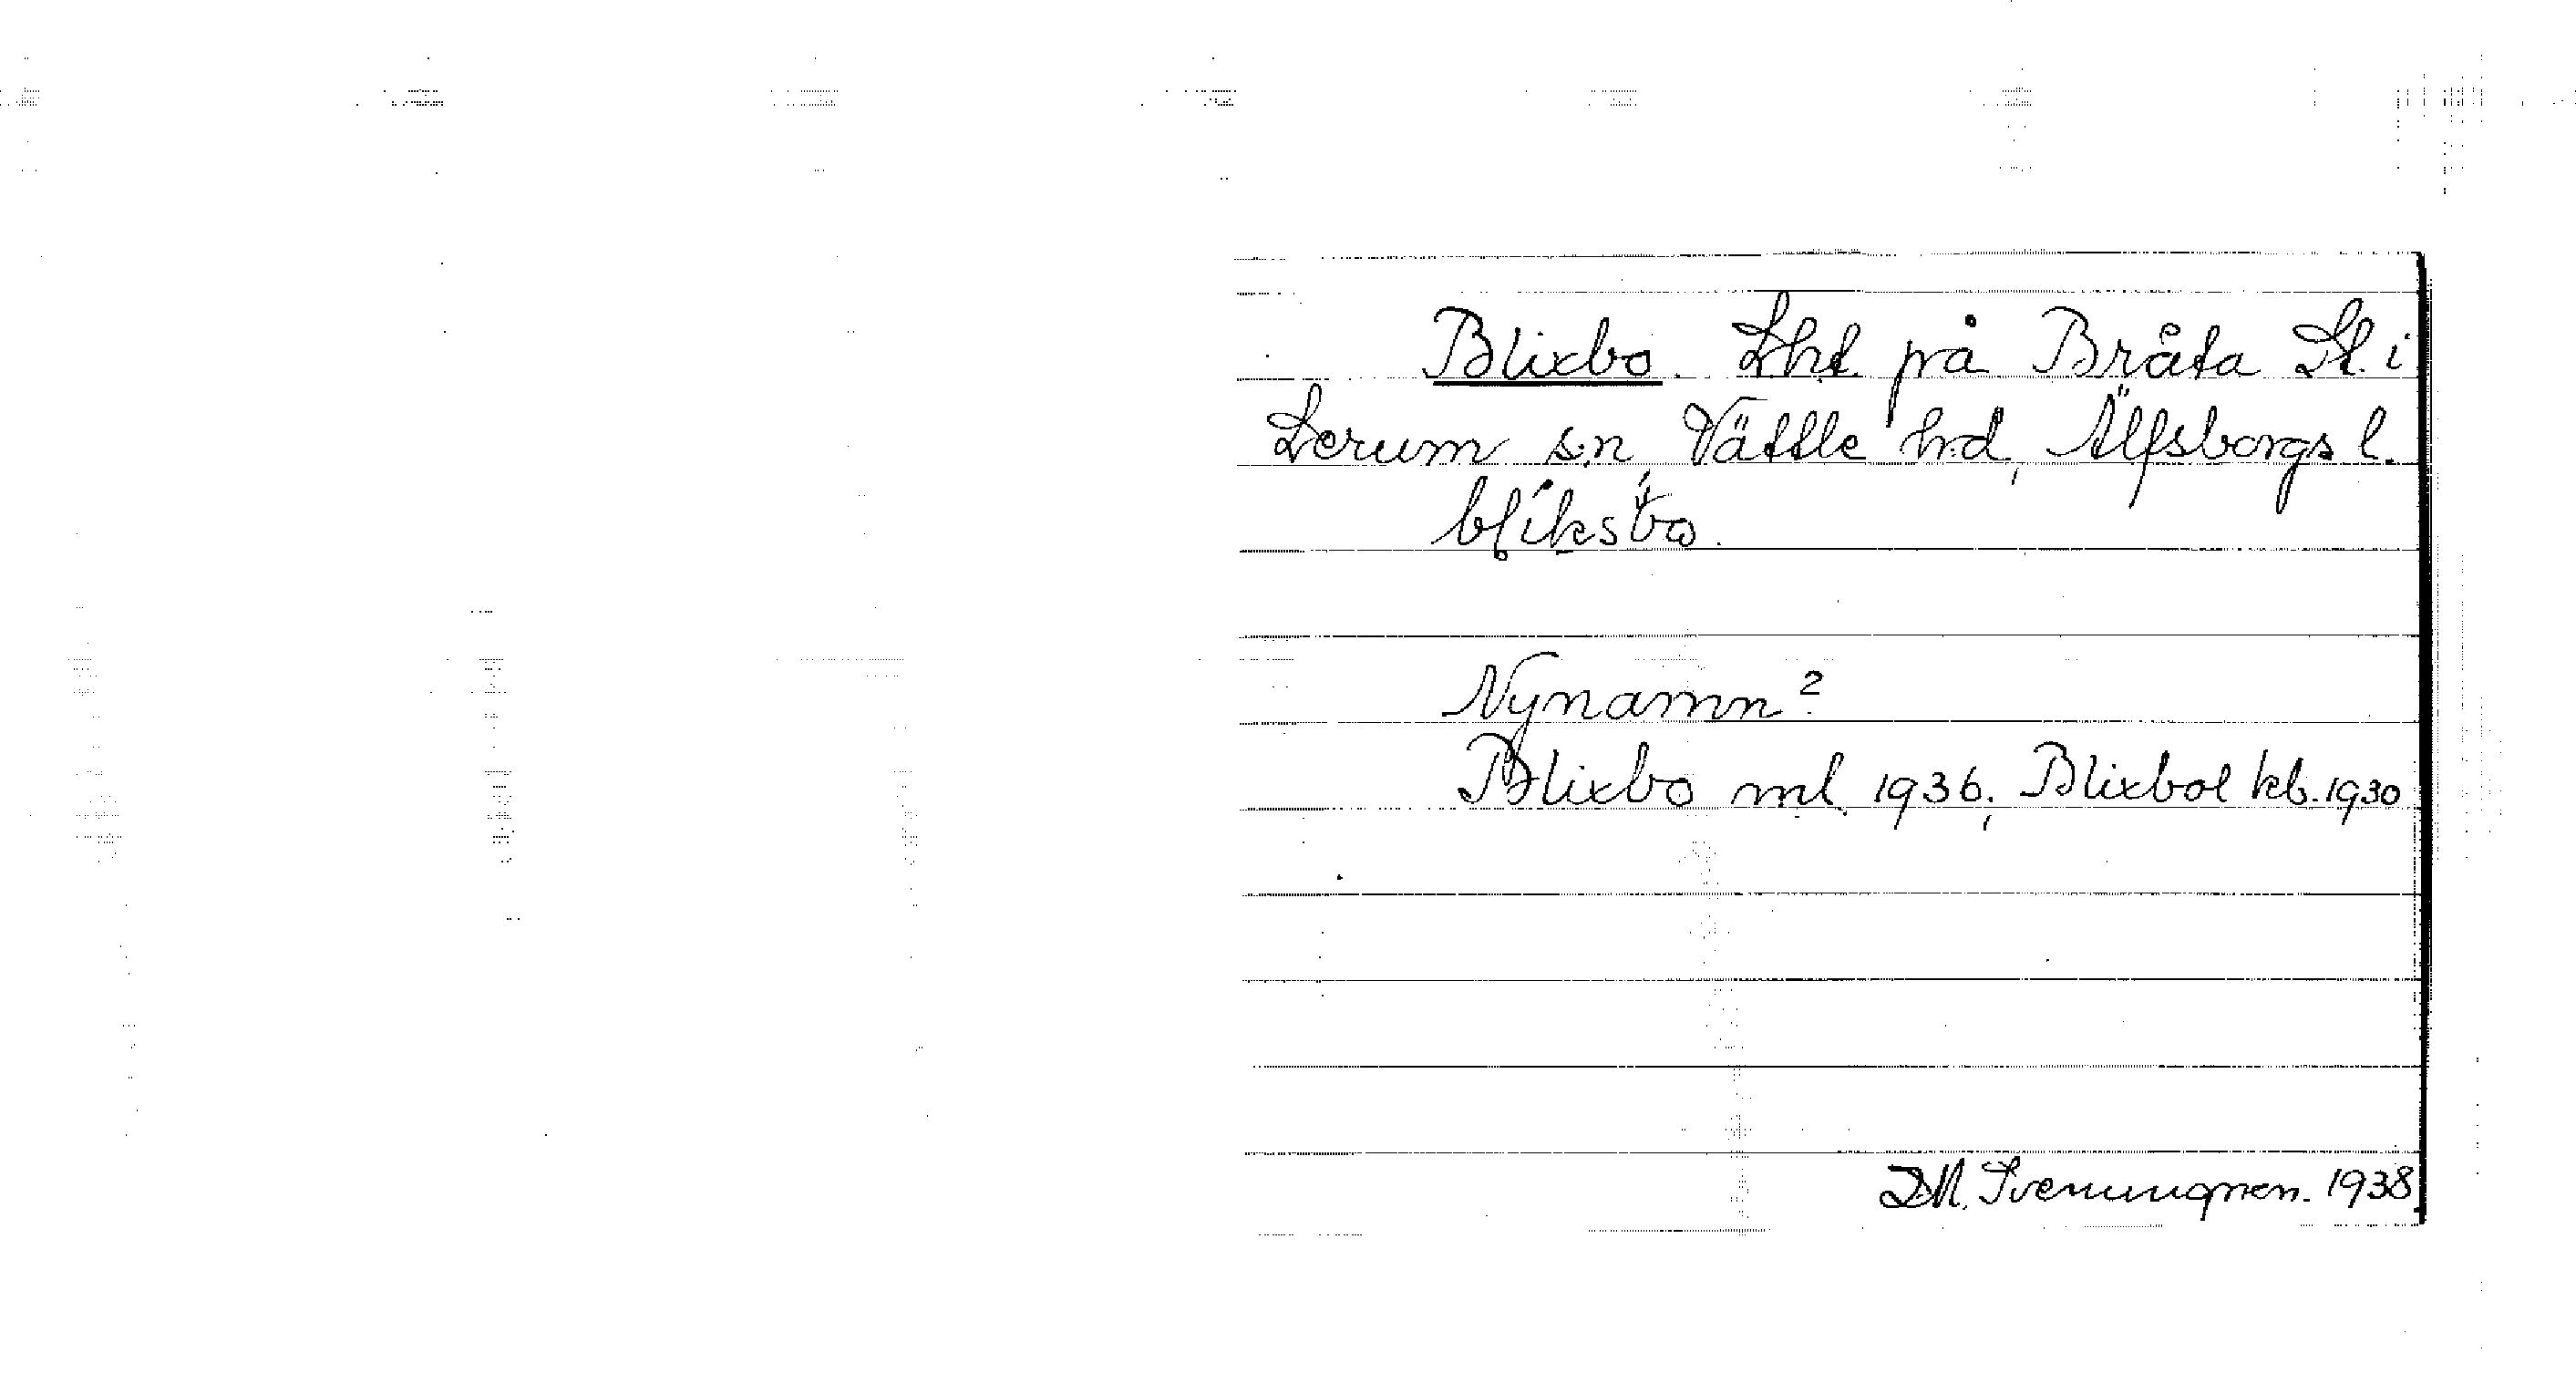 Blixbo. Lht på Bråta St. i
Lerum sn, Vättle hd, Älfsborgs l.
blíksbo.
Nynamn?
Blixbo ml. 1936, Blixbol kb. 1930
D.M. Svenungsson. 1938